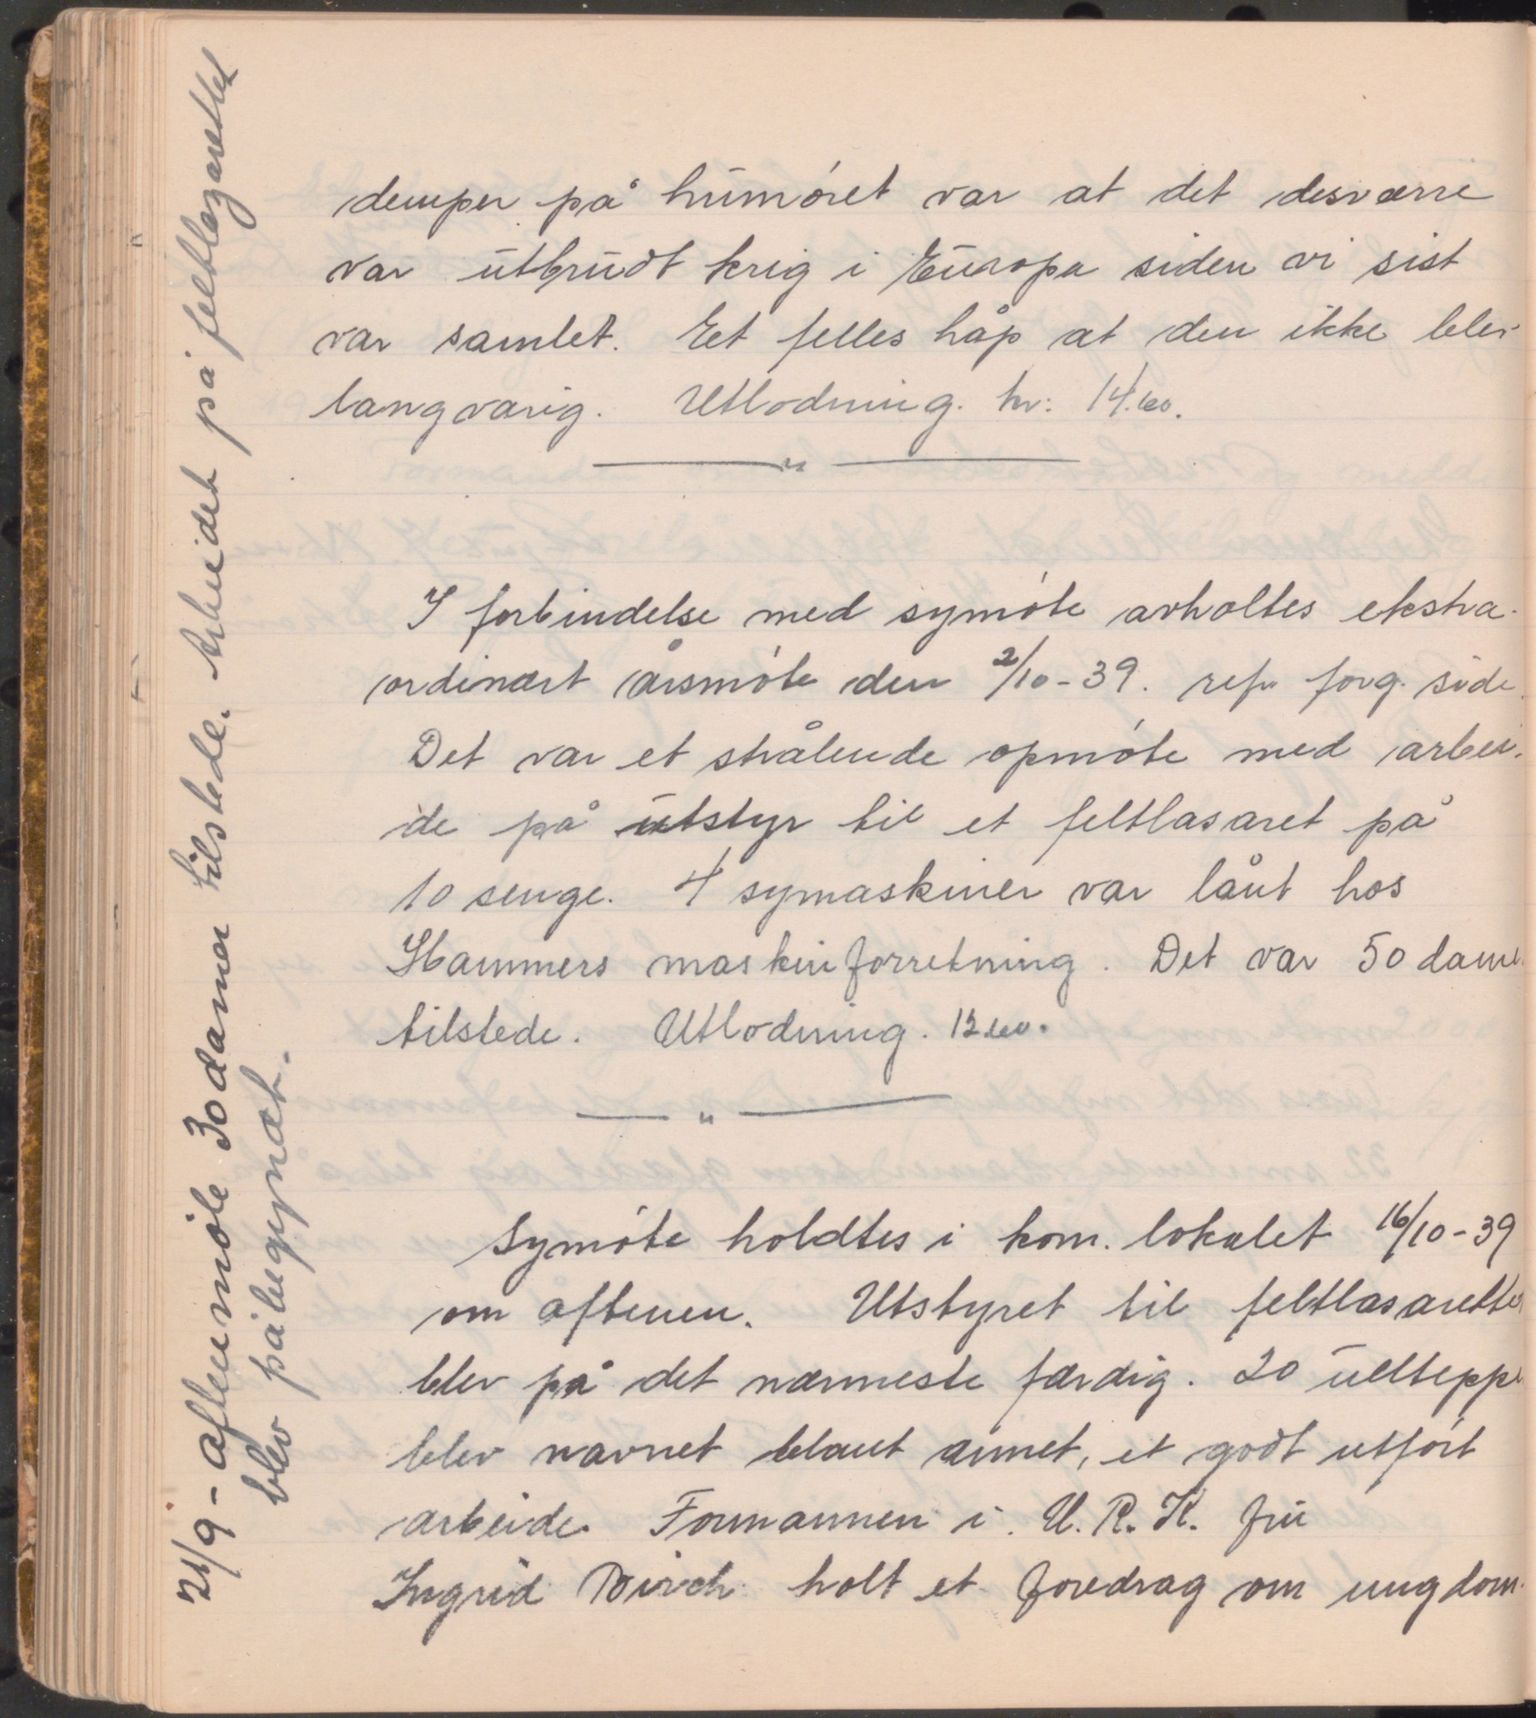 demper på humøret var at det desværre
var utbrudt krig i Europa siden vi sist
var samlet. Et felles håp at den ikke blev
langvarig. Utlodning. kr: 14.60.
I forbindelse med symøte avholtes ekstra-
ordinært årsmøte den 2/10-39. ref. forg. side.
Det var et strålende opmøte med arbei-
de på utstyr til et feltlasaret på
10 senge. 4 symaskiner var lånt hos
Hammers maskinforretning. Det var 50 damer
tilstede. Utlodning. 12.60.
Symøte holdtes i kom. lokalet 16/10-39
om aftenen. Utstyret til feltlasarettet
blev på det nærmeste færdig. 20 ullteppe
blev navnet blant annet, et godt utført
arbeide. Formannen i U. R. K. fru
Ingrid Birch holt et foredrag om ungdom-
21/9 - aftenmøte 30 damer tilstede. Arbeidet på feltlazarettet
blev påbegynat.